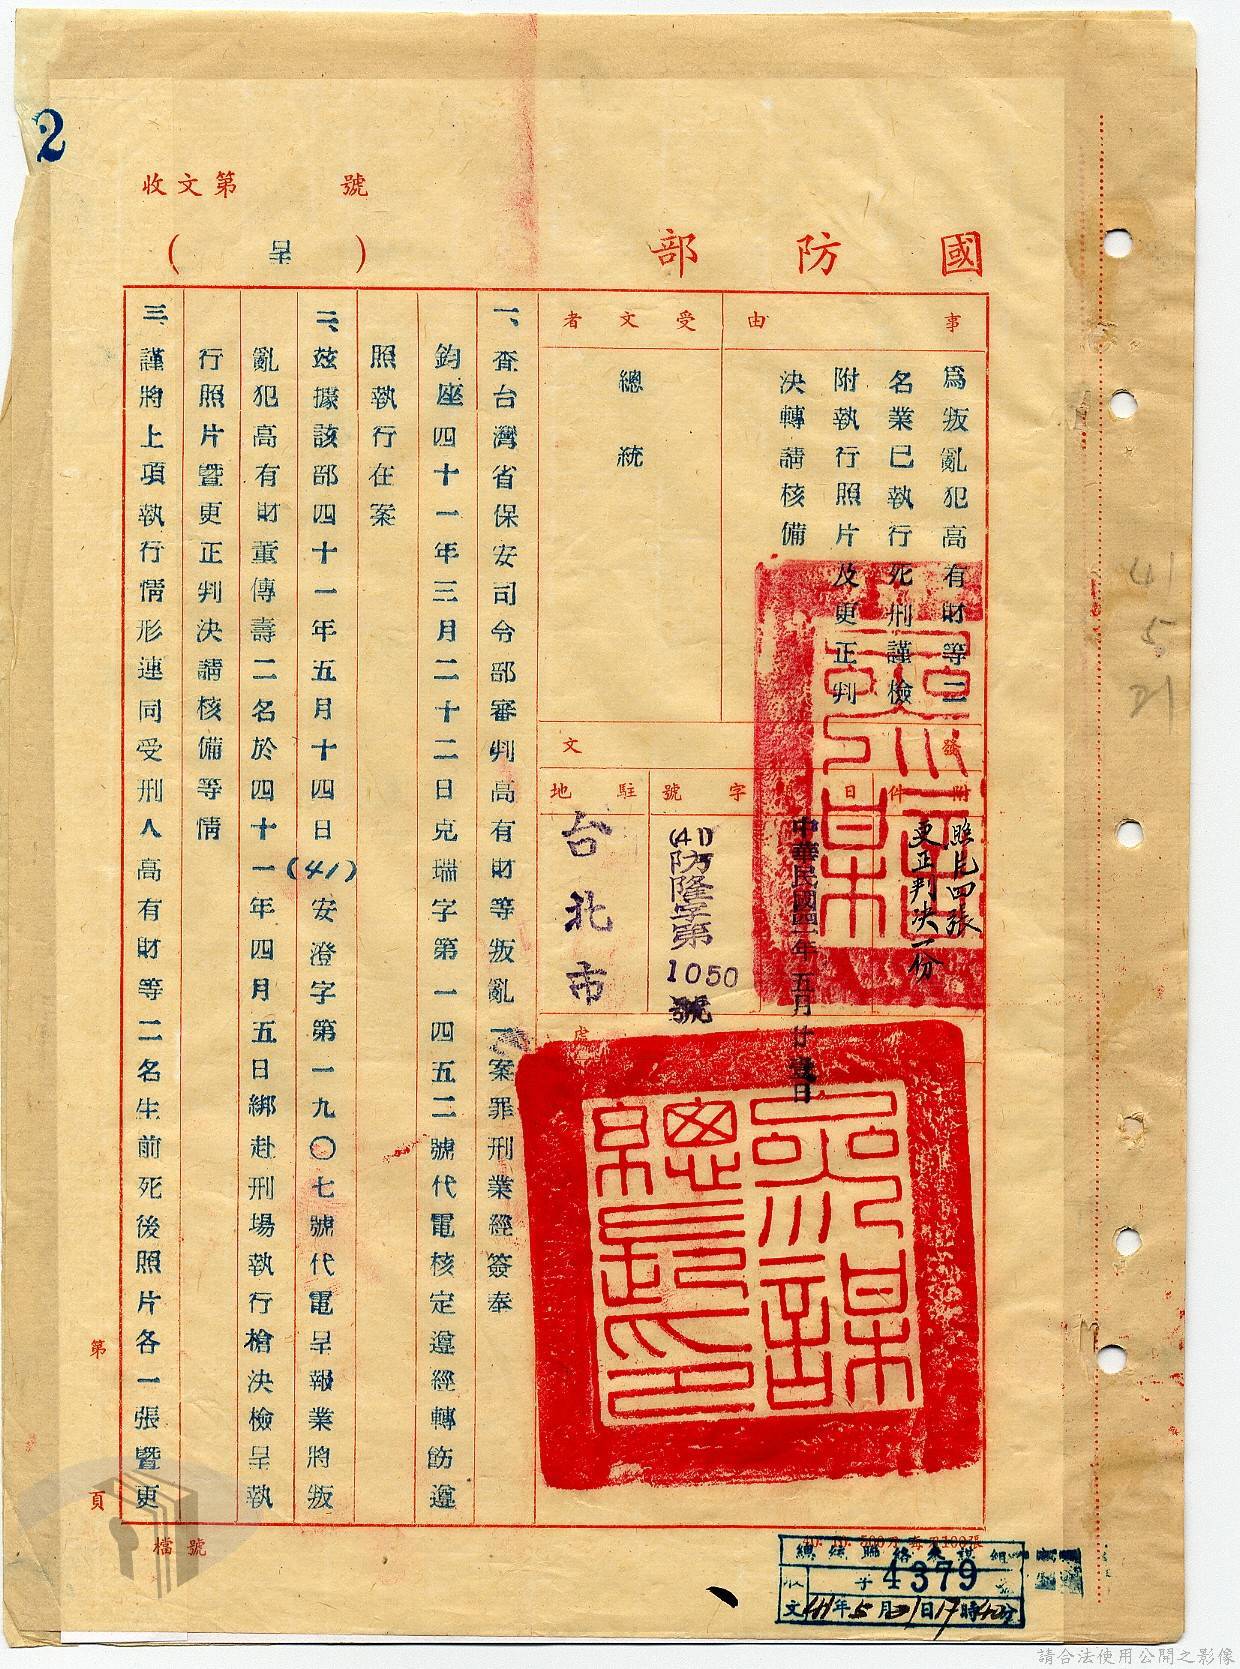 2
收文第　　號
國防部
（呈）
事由
為叛亂犯高有財等二
名業已執行死刑謹檢
附執行照片及更正判
決轉請核備
受文者
總統
發文
附件
照片四張
更正判決一份
日
中華民國四一年五月廿壹日
字號
(41)防隆字第1050號
駐地
台北市
一、查台灣省保安司令部審判高有財等叛亂一案罪刑業經簽奉
鈞座四十一年三月二十二日克瑞字第一四五二號代電核定遵經轉飭遵
照執行在案
二、茲據該部四十一年五月十四日(41)安澄字第一九〇七號代電呈報業將叛
亂犯高有財董傳壽二名於四十一年四月五日綁赴刑場執行槍決檢呈執
行照片暨更正判決請核備等情
三、謹將上項執行情形連同受刑人高有財等二名生前死後照片各一張暨更
第　頁
檔號
參謀總長印
總統聯絡參謀組
收文　字4379號
41年5月21日17時40分
41
5
21
請合法使用公開之影像